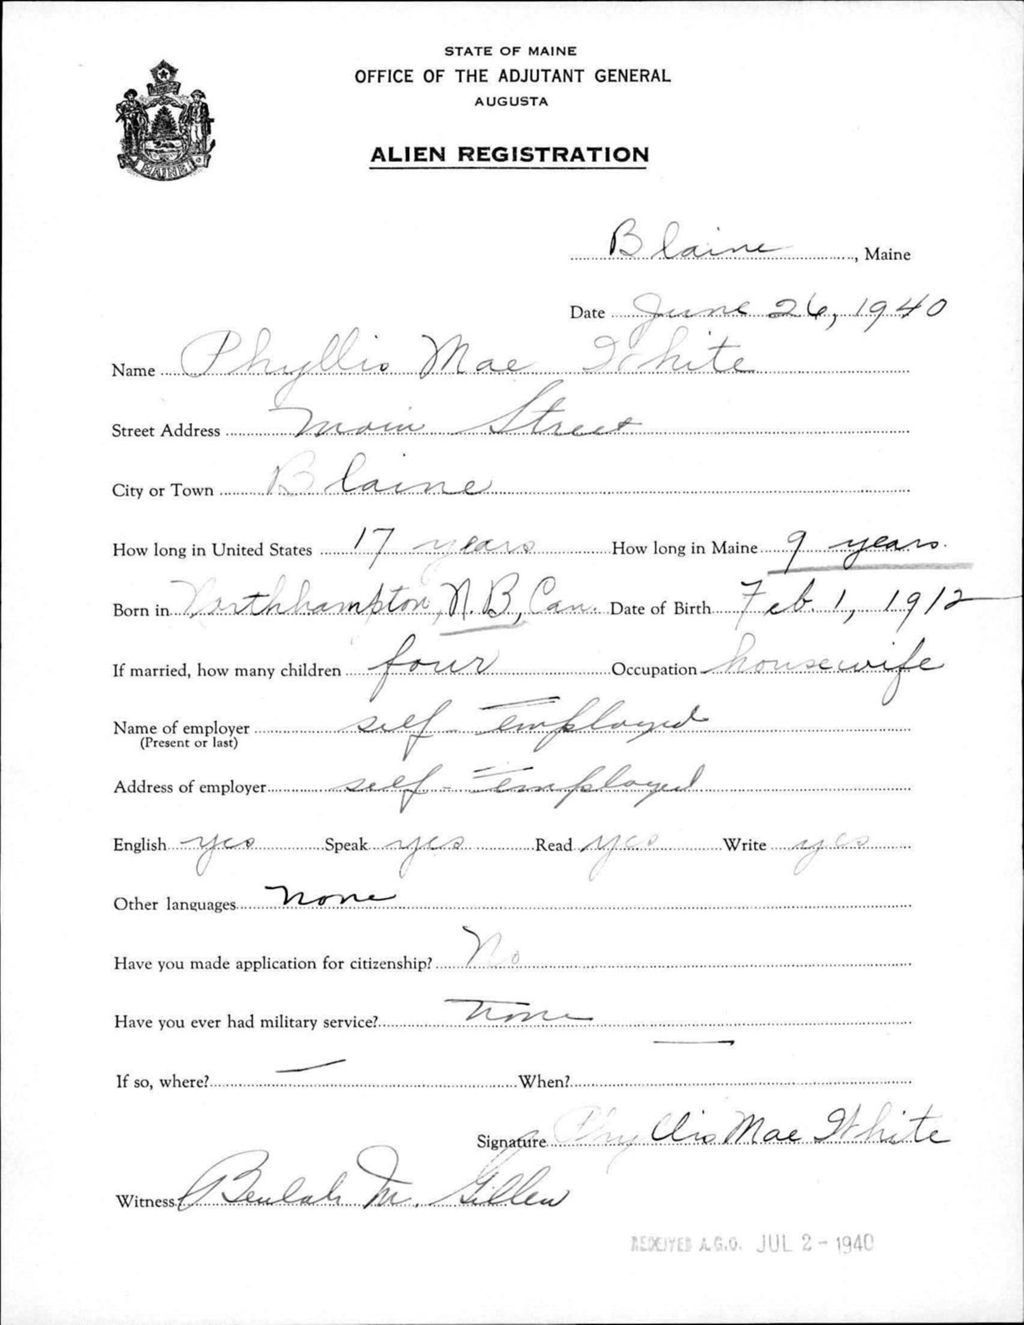 STATE OF MAINE
OFFICE OF THE ADJUTANT GENERAL
AUGUSTA
ALIEN REGISTRATION
MAINE
Blaine, Maine
Date June 26, 1940
Name Phyllis Mae White
Street Address Main Street
City or Town Blaine
How long in United States 17 years How long in Maine 9 years.
Born in Northhampton, N.B, Can. Date of Birth Feb. 1, 1912
If married, how many children four Occupation housewife
Name of employer self-employed
(Present or last)
Address of employer self-employed
English yes Speak yes Read yes Write yes
Other languages none
Have you made application for citizenship? No
Have you ever had military service? none
If so, where? — When? —
Signature Phyllis Mae White
Witness Beulah M. Gillen
RECEIVED A.G.O. JUL 2 - 1940